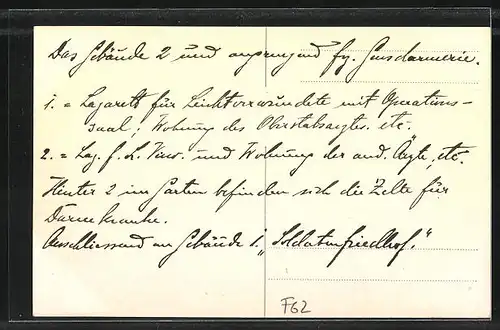 Das Gebäude 2 und angrenzend fr. Gendarmerie.
1. = Lazarett für Leichtverwundete mit Operations-
saal; Wohnung des Oberstabsarztes. etc.
2. = Laz. f. L. Verw. und Wohnung der and. Ärzte, etc.
Hinter 2 im Garten befinden sich die Zelte für
Darmkranke.
Anschliessend an Gebäude 1. „Soldatenfriedhof."
F62